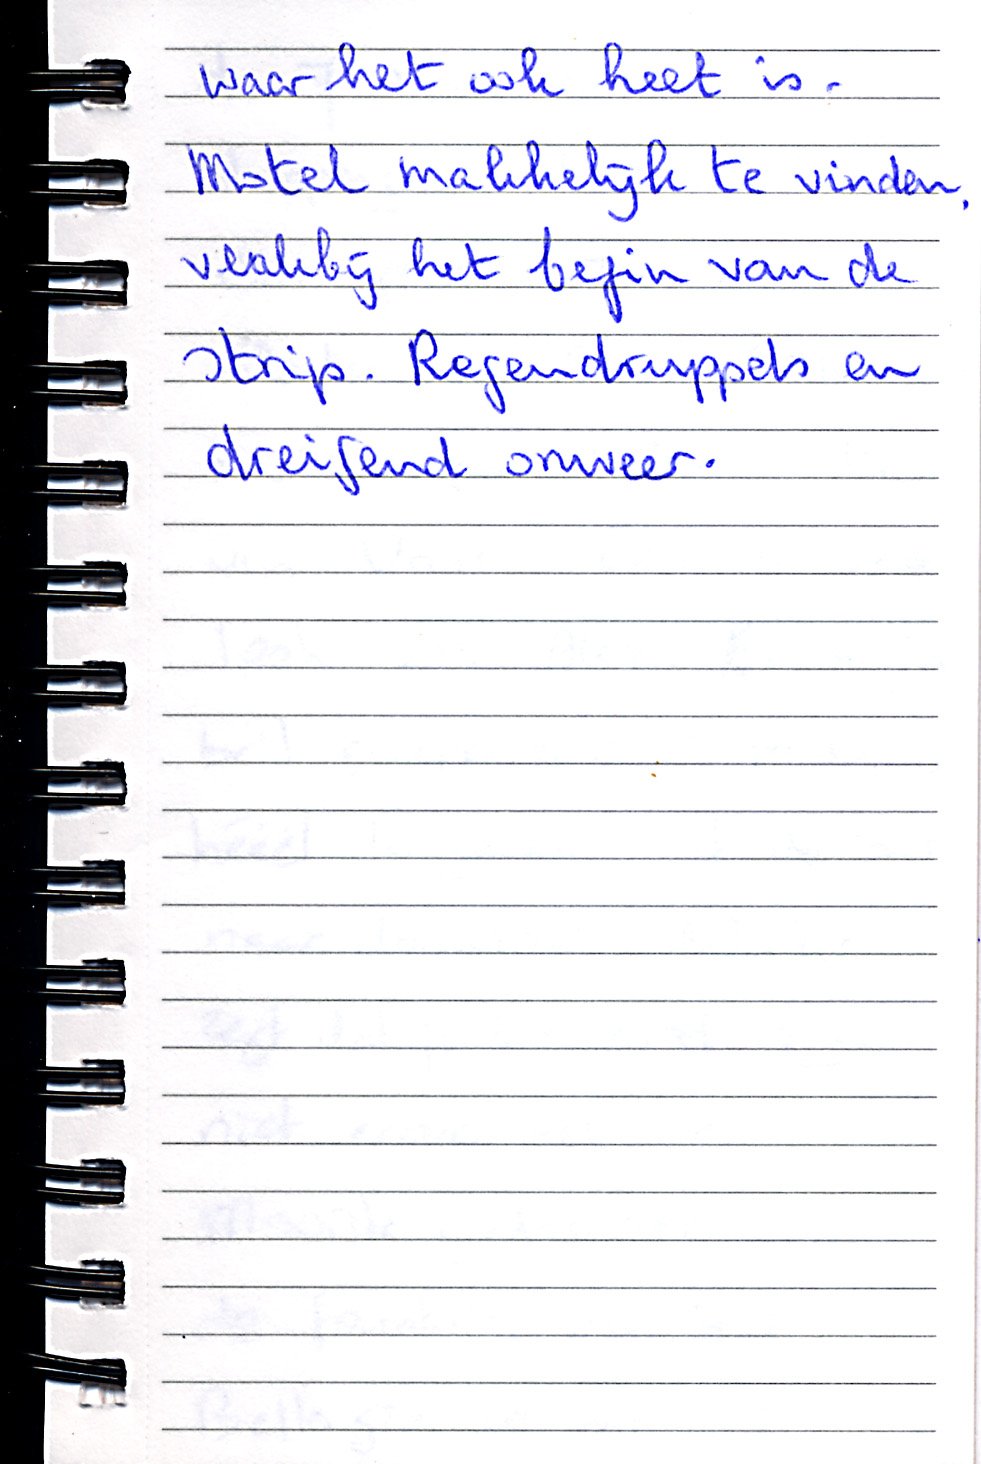 waar het ook heet is.
Motel makkelijk te vinden,
vlakbij het begin van de
strip. Regendruppels en
dreigend onweer.